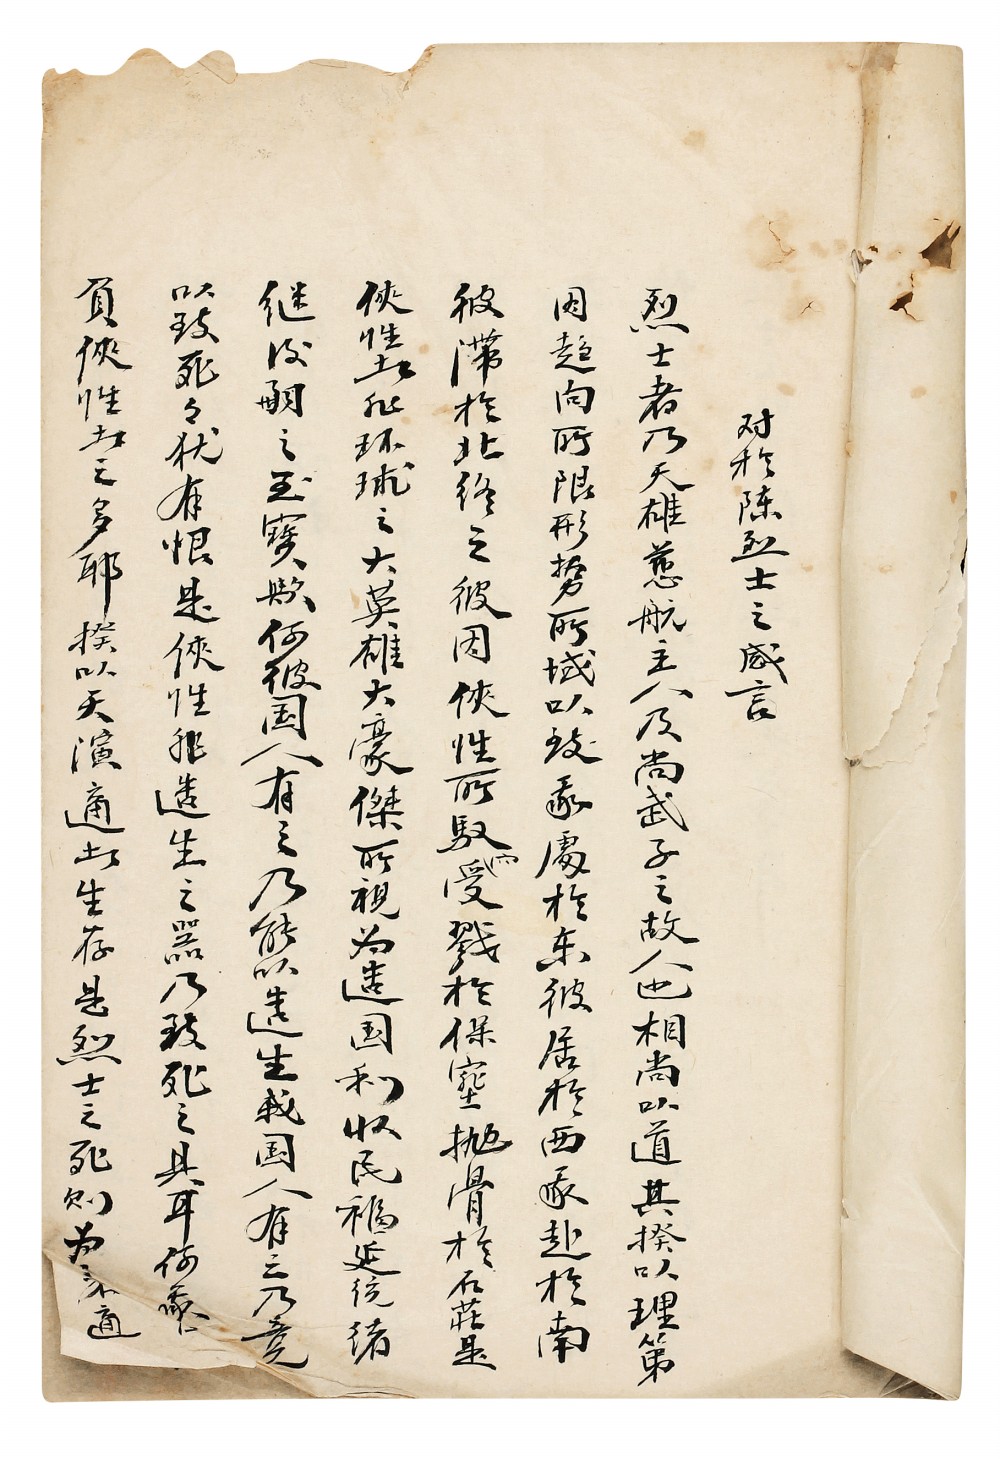 对於陈烈士之感言
烈士者乃天雄慈航主人及尚武子之故人也相尚以道其揆以理第
因趋向所限形势所域以致豖處於东彼居於西豖赴於南
彼滞於北终之彼因侠性所驭而受戮於保垒抛骨於石莊是
侠性者非环球之大英雄大豪傑所视为造国利收民福延统绪
继後嗣之至寳欤何彼国人有之乃能以造生我国人有之乃竟
以致死々犹有恨是侠性非造生之器乃致死之具耳何
負侠性者之多耶揆以天演適者生存是烈士之死则为不適